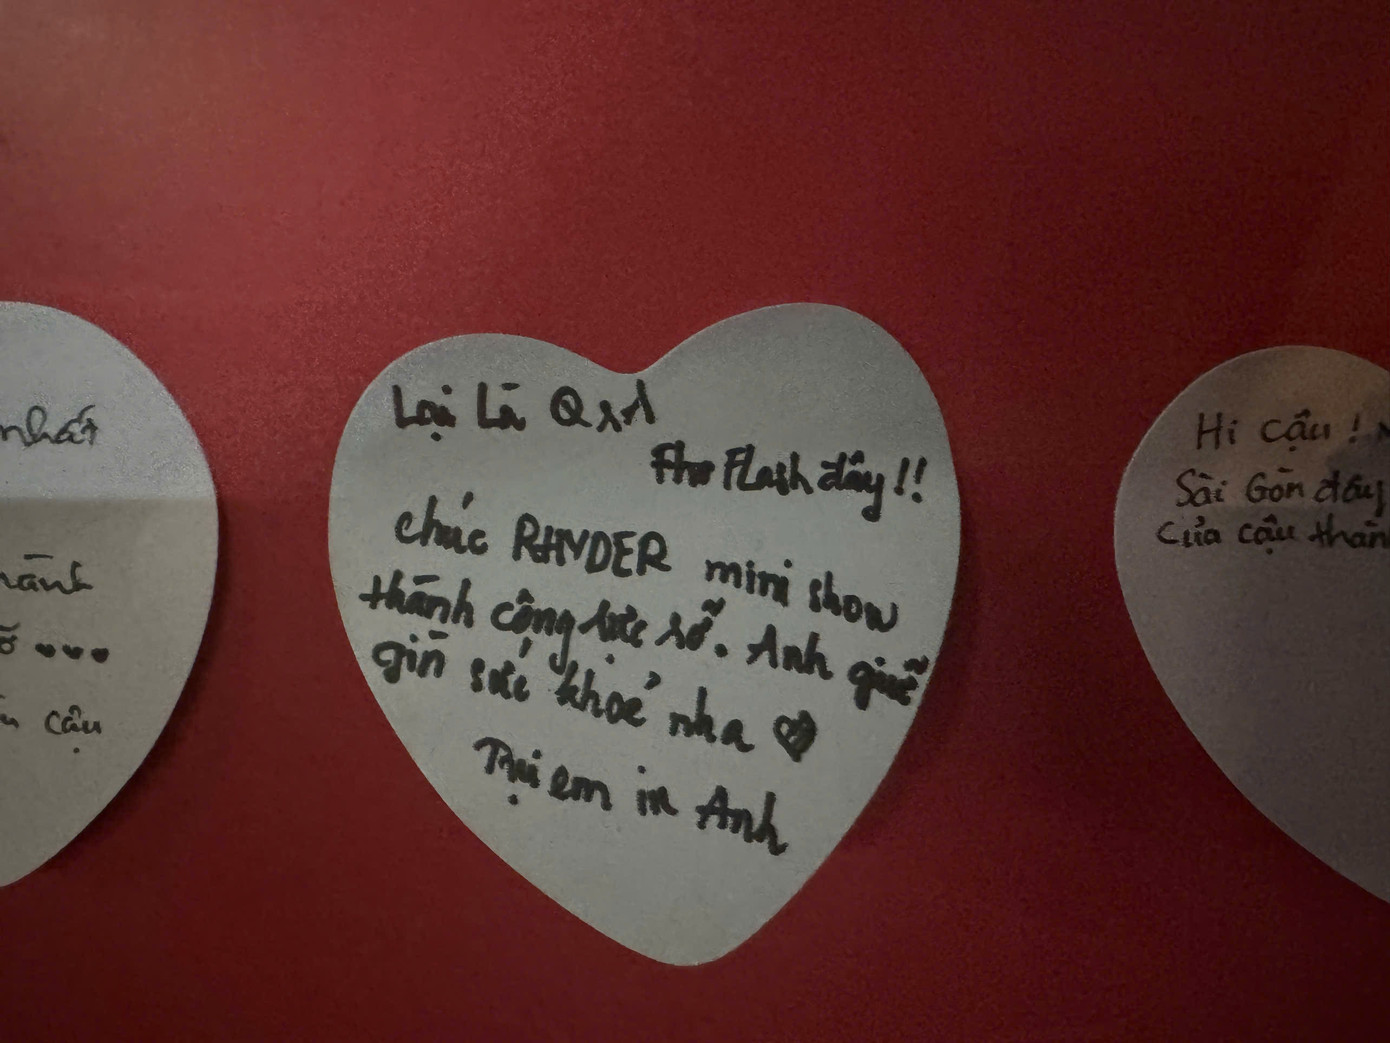 nhất
cậu
Lại Là
Flash đây!!
chúc RHYDER mini show
thành công rực rỡ. Anh giữ
gìn sức khoẻ nha
Tụi em in Anh
Hi cậu!
Sài Gòn đây
của cậu